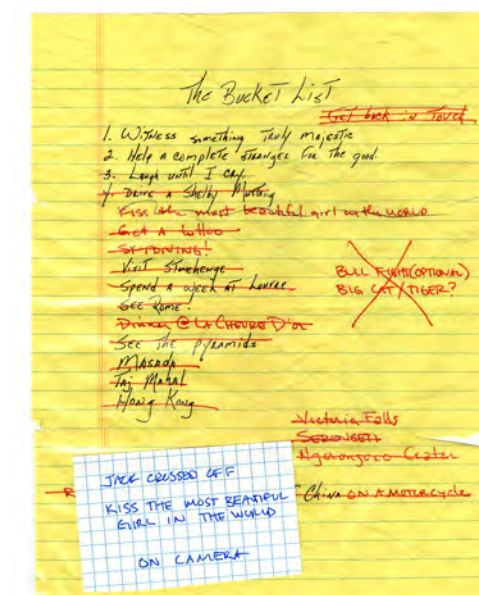 The Bucket List
Get back in Touch
1. Witness something Truly majestic
2. Help a complete stranger for the good.
3. Laugh until I cry.
4. Drive a Shelby Mustang
Kiss the most beautiful girl in the world
Get a tattoo
SKYDIVING!
Visit Stonehenge
Spend a week at Louvre
SEE ROME.
Dinner @ LA CHEVRE D'OR
See the pyramids
MASADA
Taj Mahal
Hong Kong
BULL FIGHT (OPTIONAL)
BIG CAT / TIGER?
Victoria Falls
SERENGETI
Ngorongoro Crater
R
China ON A MOTORCYCLE
JACK CROSSED OFF
KISS THE MOST BEAUTIFUL
GIRL IN THE WORLD
ON CAMERA